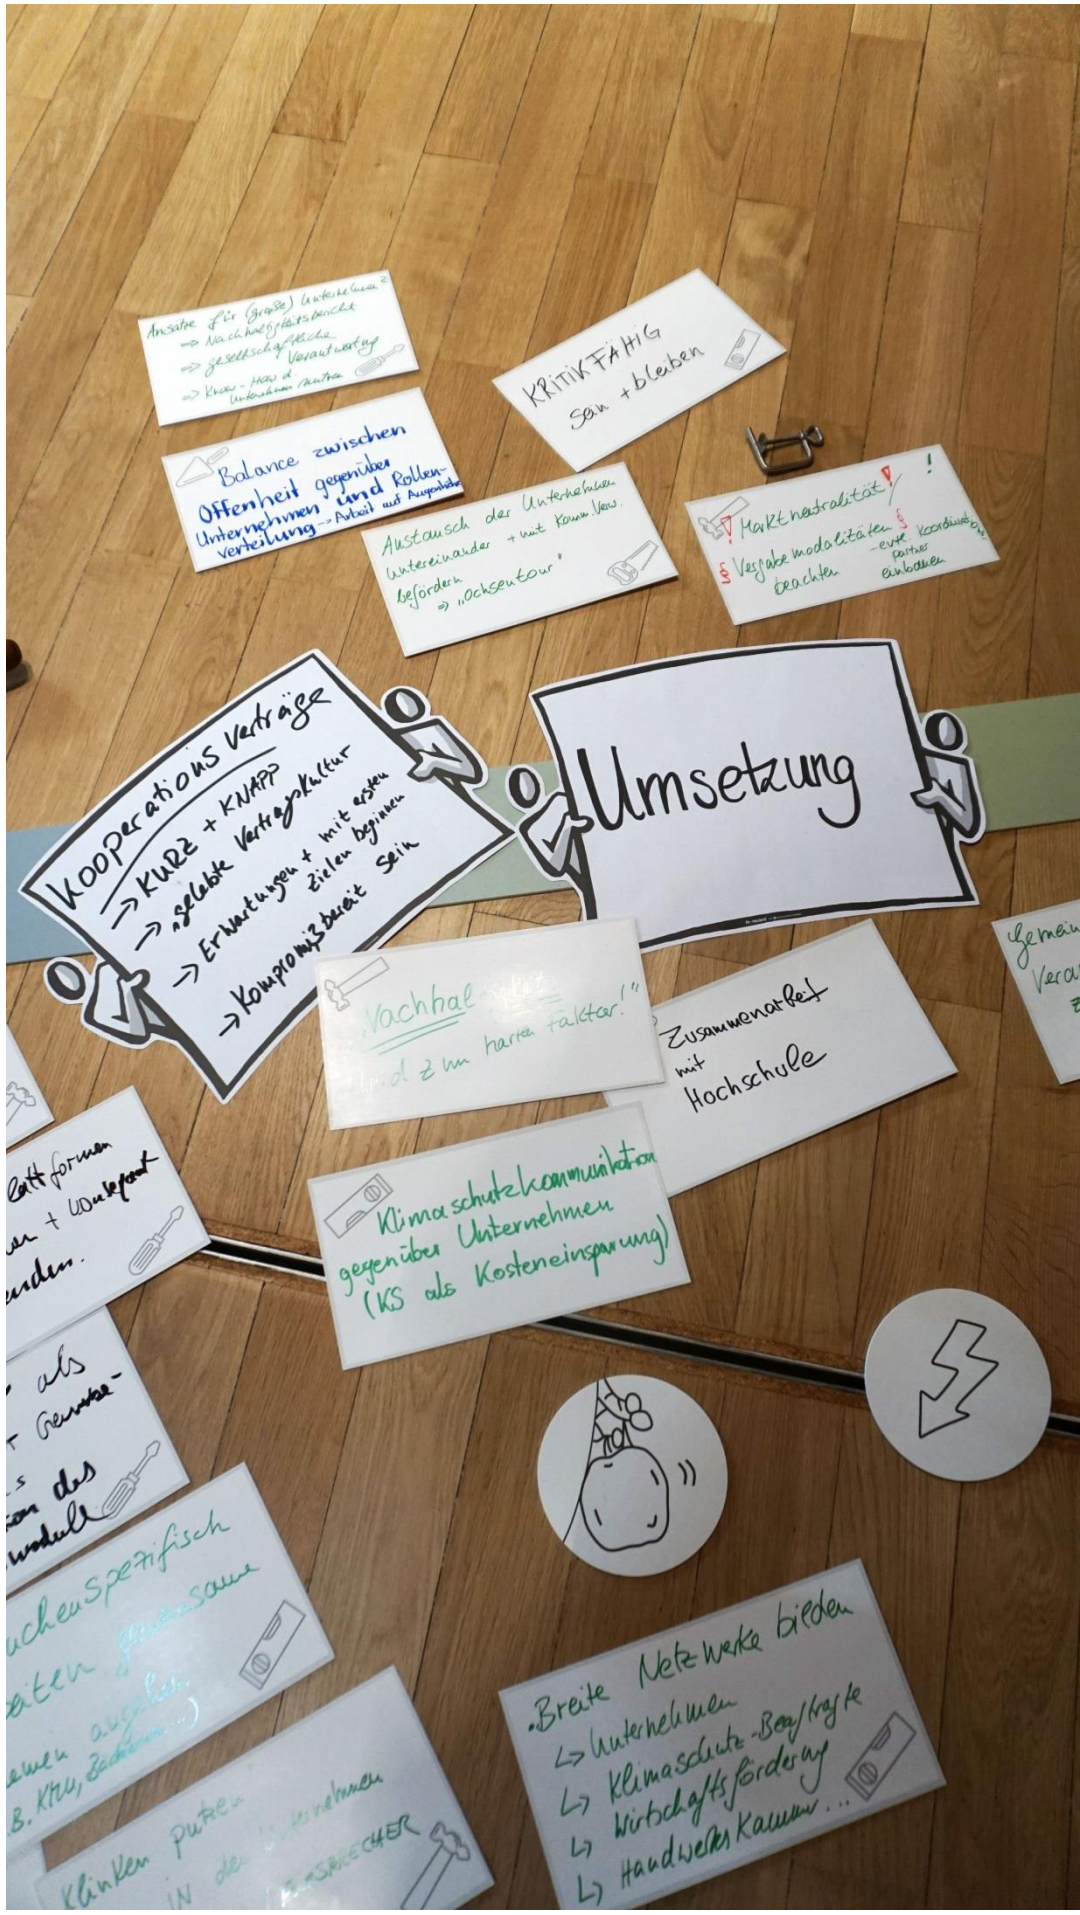 Ansätze für (große) Unternehmen?
⇒ Nachhaltigkeitsbericht
⇒ gesellschaftliche
Verantwortung
⇒ Know-How d.
Unternehmen nutzen
KRITIKFÄHIG
sein + bleiben
Balance zwischen
Offenheit gegenüber
Unternehmen und Rollen-
verteilung → Arbeit auf Augenhöhe
Austausch der Unternehmen
untereinander + mit Komm.Verw.
befördern
⇒ „Ochsentour"
! Marktneutralität! !
§ Vergabemodalitäten §
beachten
- evtl. Koordinations
partner
einbinden
Kooperationsverträge
→ KURZ + KNAPP
→ „gelebte Vertragskultur
→ Erwartungen + mit ersten
Zielen beginnen
→ Kompromißbereit sein
Umsetzung
Nachhal
zum harten Faktor!"
Zusammenarbeit
mit
Hochschule
Gemein
Vera
z
attformen
+ konsequent
enden.
Klimaschutzkommunikation
gegenüber Unternehmen
(KS als Kosteneinsparung)
als
+ Gewerbe-
s
ion des
uchenspezifisch
eiten gemeinsame
emen angehen
.B. KMU,
Klinken putzen
IN den Unternehmen
• Breite Netzwerke bilden
↳ Unternehmen
↳ Klimaschutz-Beauftragte
↳ Wirtschaftsförderung
↳ Handwerkskammer...